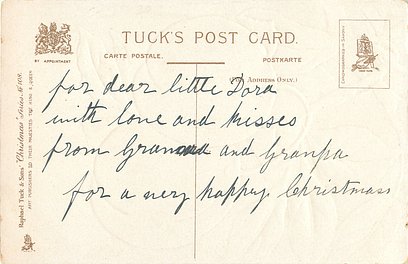 TUCK'S POST CARD.
BY APPOINTMENT
CARTE POSTALE.
POSTKARTE
(FOR ADDRESS ONLY.)
for dear little Dora
with love and kisses
from Granma and Granpa
for a very happy Christmas
Raphael Tuck & Sons' "Christmas" Series
ART PUBLISHERS TO THEIR MAJESTIES THE KING & QUEEN